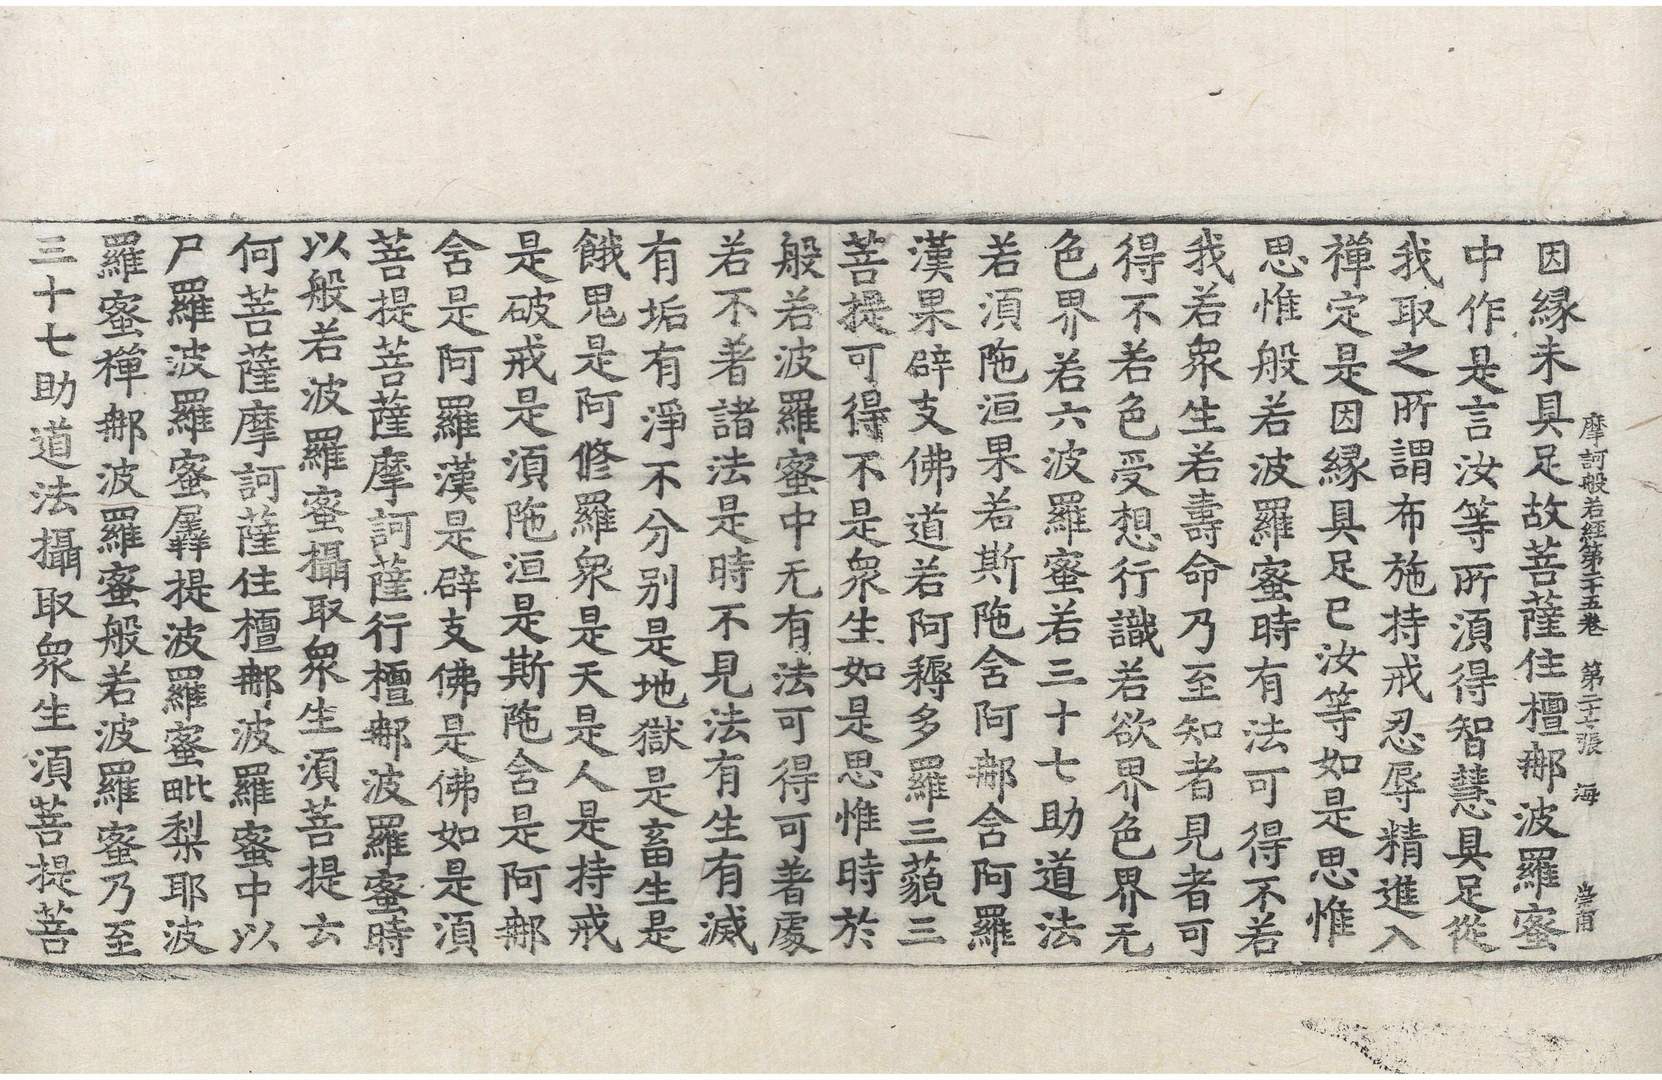 摩訶般若經第二十五卷　第二十七張　海
因緣未具足故菩薩住檀那波羅蜜
中作是言汝等所須得智慧具足從
我取之所謂布施持戒忍辱精進入
禪定是因緣具足已汝等如是思惟
思惟般若波羅蜜時有法可得不若
我若衆生若壽命乃至知者見者可
得不若色受想行識若欲界色界无
色界若六波羅蜜若三十七助道法
若須陁洹果若斯陁含阿那含阿羅
漢果辟支佛道若阿耨多羅三藐三
菩提可得不是衆生如是思惟時於
般若波羅蜜中无有法可得可著處
若不著諸法是時不見法有生有滅
有垢有淨不分別是地獄是畜生是
餓鬼是阿修羅衆是天是人是持戒
是破戒是須陁洹是斯陁含是阿那
含是阿羅漢是辟支佛是佛如是須
菩提菩薩摩訶薩行檀那波羅蜜時
以般若波羅蜜攝取衆生須菩提云
何菩薩摩訶薩住檀那波羅蜜中以
尸羅波羅蜜羼提波羅蜜毗梨耶波
羅蜜禪那波羅蜜般若波羅蜜乃至
三十七助道法攝取衆生須菩提菩